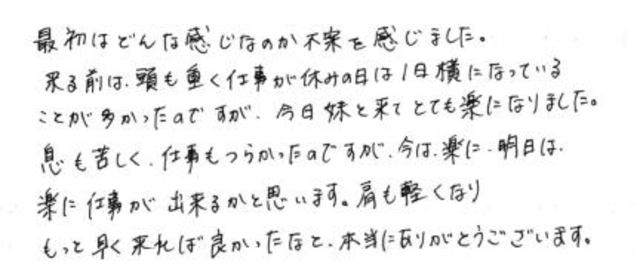 最初はどんな感じなのか不案を感じました。
来る前は、頭も重く仕事が休みの日は1日横になっている
ことが多かったのですが、今日妹と来てとても楽になりました。
息も苦しく、仕事もつらかったのですが、今は、楽に、明日は、
楽に仕事が出来るかと思います。肩も軽くなり
もっと早く来れば良かったなと、本当にありがとうございます。